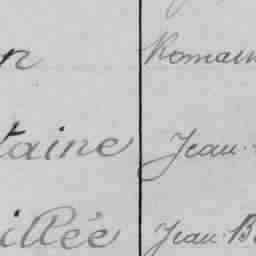 n Romain
taine Jean-
illée Jean-B